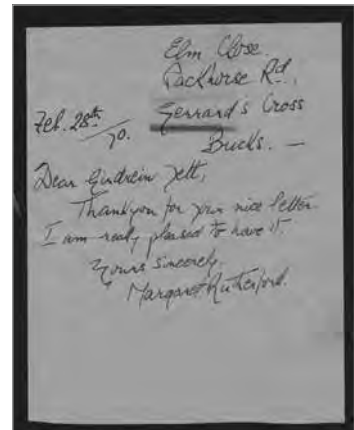 Elm Close.
Packhorse Rd.
Gerrard's Cross
Feb. 28th
/70.
Bucks. —
Dear
Thankyou for your nice letter.
I am really pleased to have it.
Yours sincerely,
Margaret Rutherford.